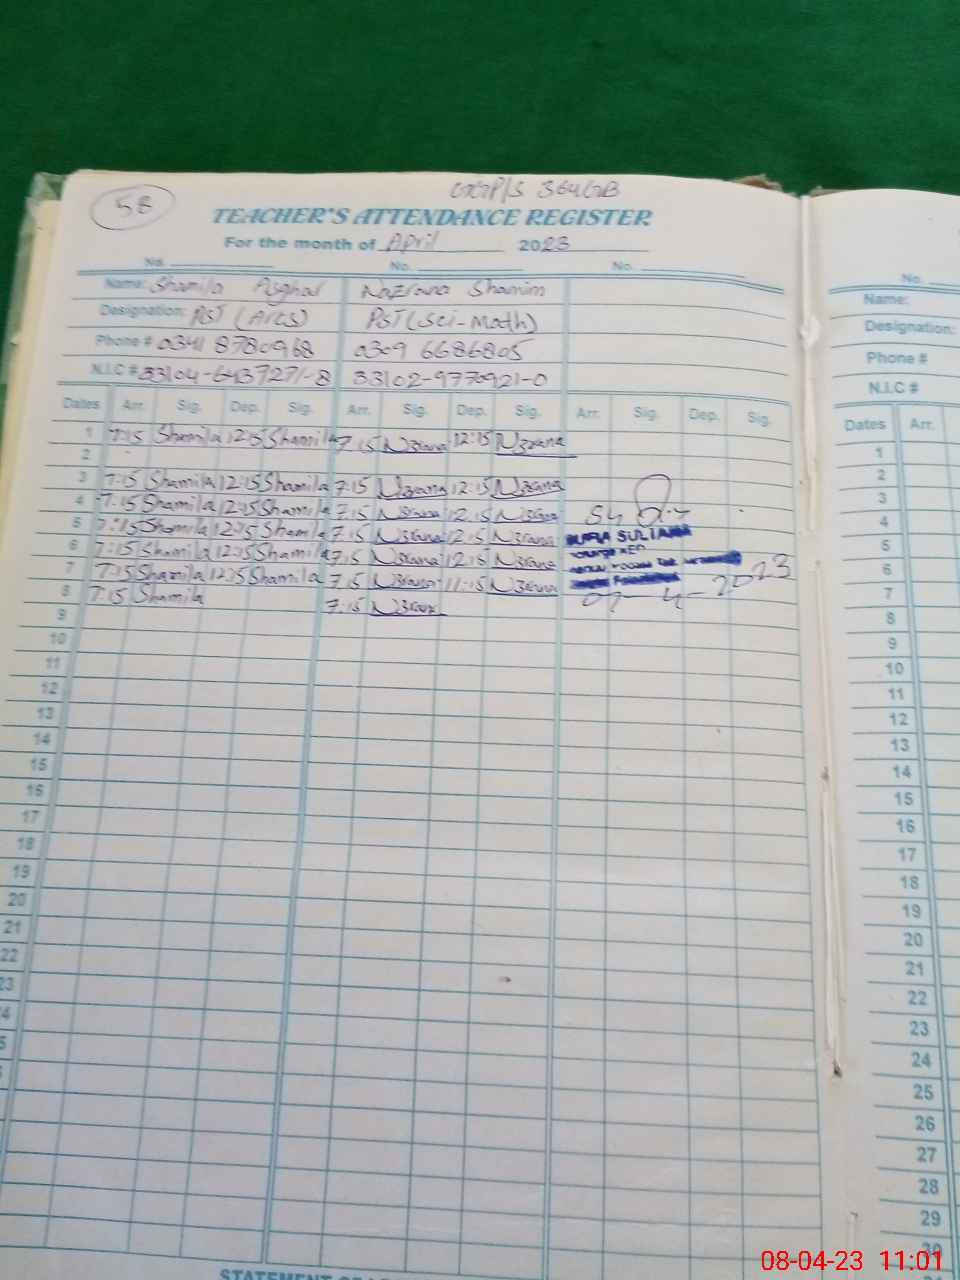 58
GGP/S 364GB
TEACHER'S ATTENDANCE REGISTER
For the month of April 2023
No. No. No. No.
Name: Shamila Asghar Nazrana Shamim Name:
Designation: PST (Arts) PST (Sci-Math) Designation:
Phone # 0341 8780968 0309 6686805 Phone #
N.I.C # 33104-6437271-8 33102-9770921-0 N.I.C #
Dates Arr. Sig. Dep. Sig. Arr. Sig. Dep. Sig. Arr. Sig. Dep. Sig. Dates Arr.
1 7:15 Shamila 12:15 Shamila 7:15 N3rana 12:15 N3rana 1
2 2
3 7:15 Shamila 12:15 Shamila 7:15 N3rana 12:15 N3rana 3
4 7:15 Shamila 12:15 Shamila 7:15 N3rana 12:15 N3rana 4
5 7:15 Shamila 12:15 Shamila 7:15 N3rana 12:15 N3rana SULTANA 5
6 7:15 Shamila 12:15 Shamila 7:15 N3rana 12:15 N3rana 6
7 7:15 Shamila 12:15 Shamila 7:15 N3rana 11:15 N3rana 07-4-2023 7
8 7:15 Shamila 7:15 N3rana 8
9 9
10 10
11 11
12 12
13 13
14 14
15 15
16 16
17 17
18 18
19 19
20 20
21 21
22 22
23 23
24
25
26
27
28
29
30
STATEMENT OF
08-04-23 11:01